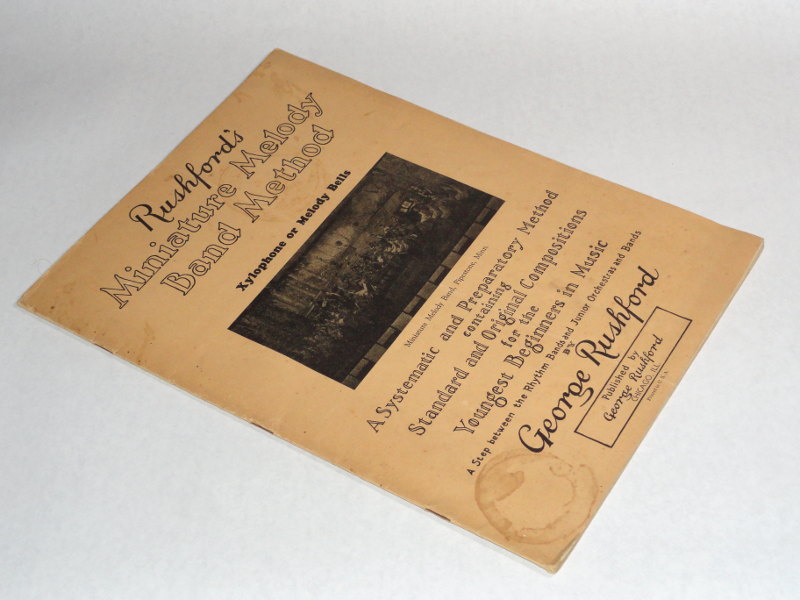 Rushford's
Miniature Melody
Band Method
Xylophone or Melody Bells
Miniature Melody Band, Pipestone, Minn.
A Systematic and Preparatory Method
containing
Standard and Original Compositions
for the
Youngest Beginners in Music
A Step between the Rhythm Bands and Junior Orchestras and Bands
BY
George Rushford
Published by
George Rushford
CHICAGO, ILL.
Printed in U.S.A.